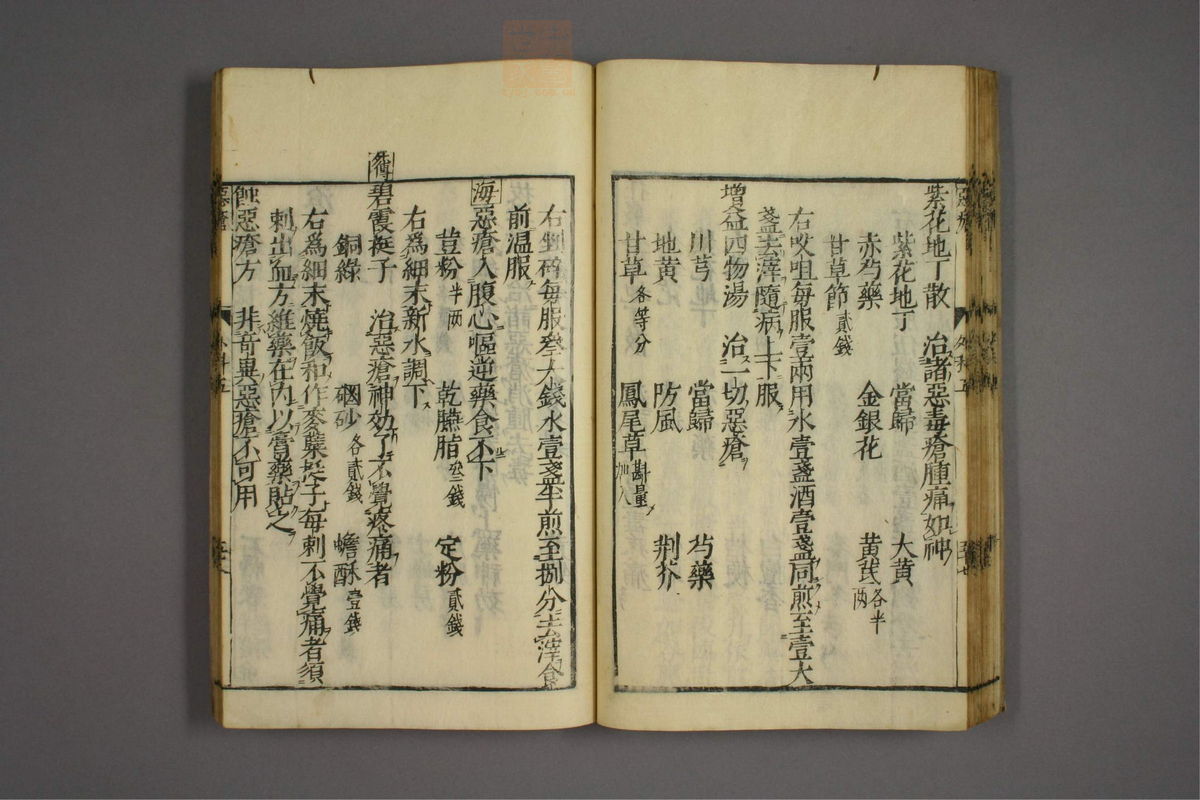 紫花地丁散　治諸惡毒瘡腫痛如神
紫花地丁　當歸　大黃
赤芍藥　金銀花　黃芪各半兩
甘草節貳錢
右㕮咀每服壹兩用水壹盞酒壹盞同煎至壹大
盞去滓隨病上下服
增益四物湯　治一切惡瘡
川芎　當歸　芍藥
地黃　防風　荆芥
甘草各等分　鳳尾草斟量加入
右剉碎每服叁大錢水壹盞半煎至捌分去滓食
前温服
海　惡瘡入腹心嘔逆藥食不下
荳粉半兩　乾臙脂叁錢　定粉貳錢
右爲細末新水調下
碧霞梃子　治惡瘡神効了不覺疼痛者
銅綠　硇砂各貳錢　蟾酥壹錢
右爲細末燒飯和作麥蘗梃子每刺不覺痛者須
刺出血方維藥在内以膏藥貼之
蝕惡瘡方　非奇異惡瘡不可用
惡瘡
外科五